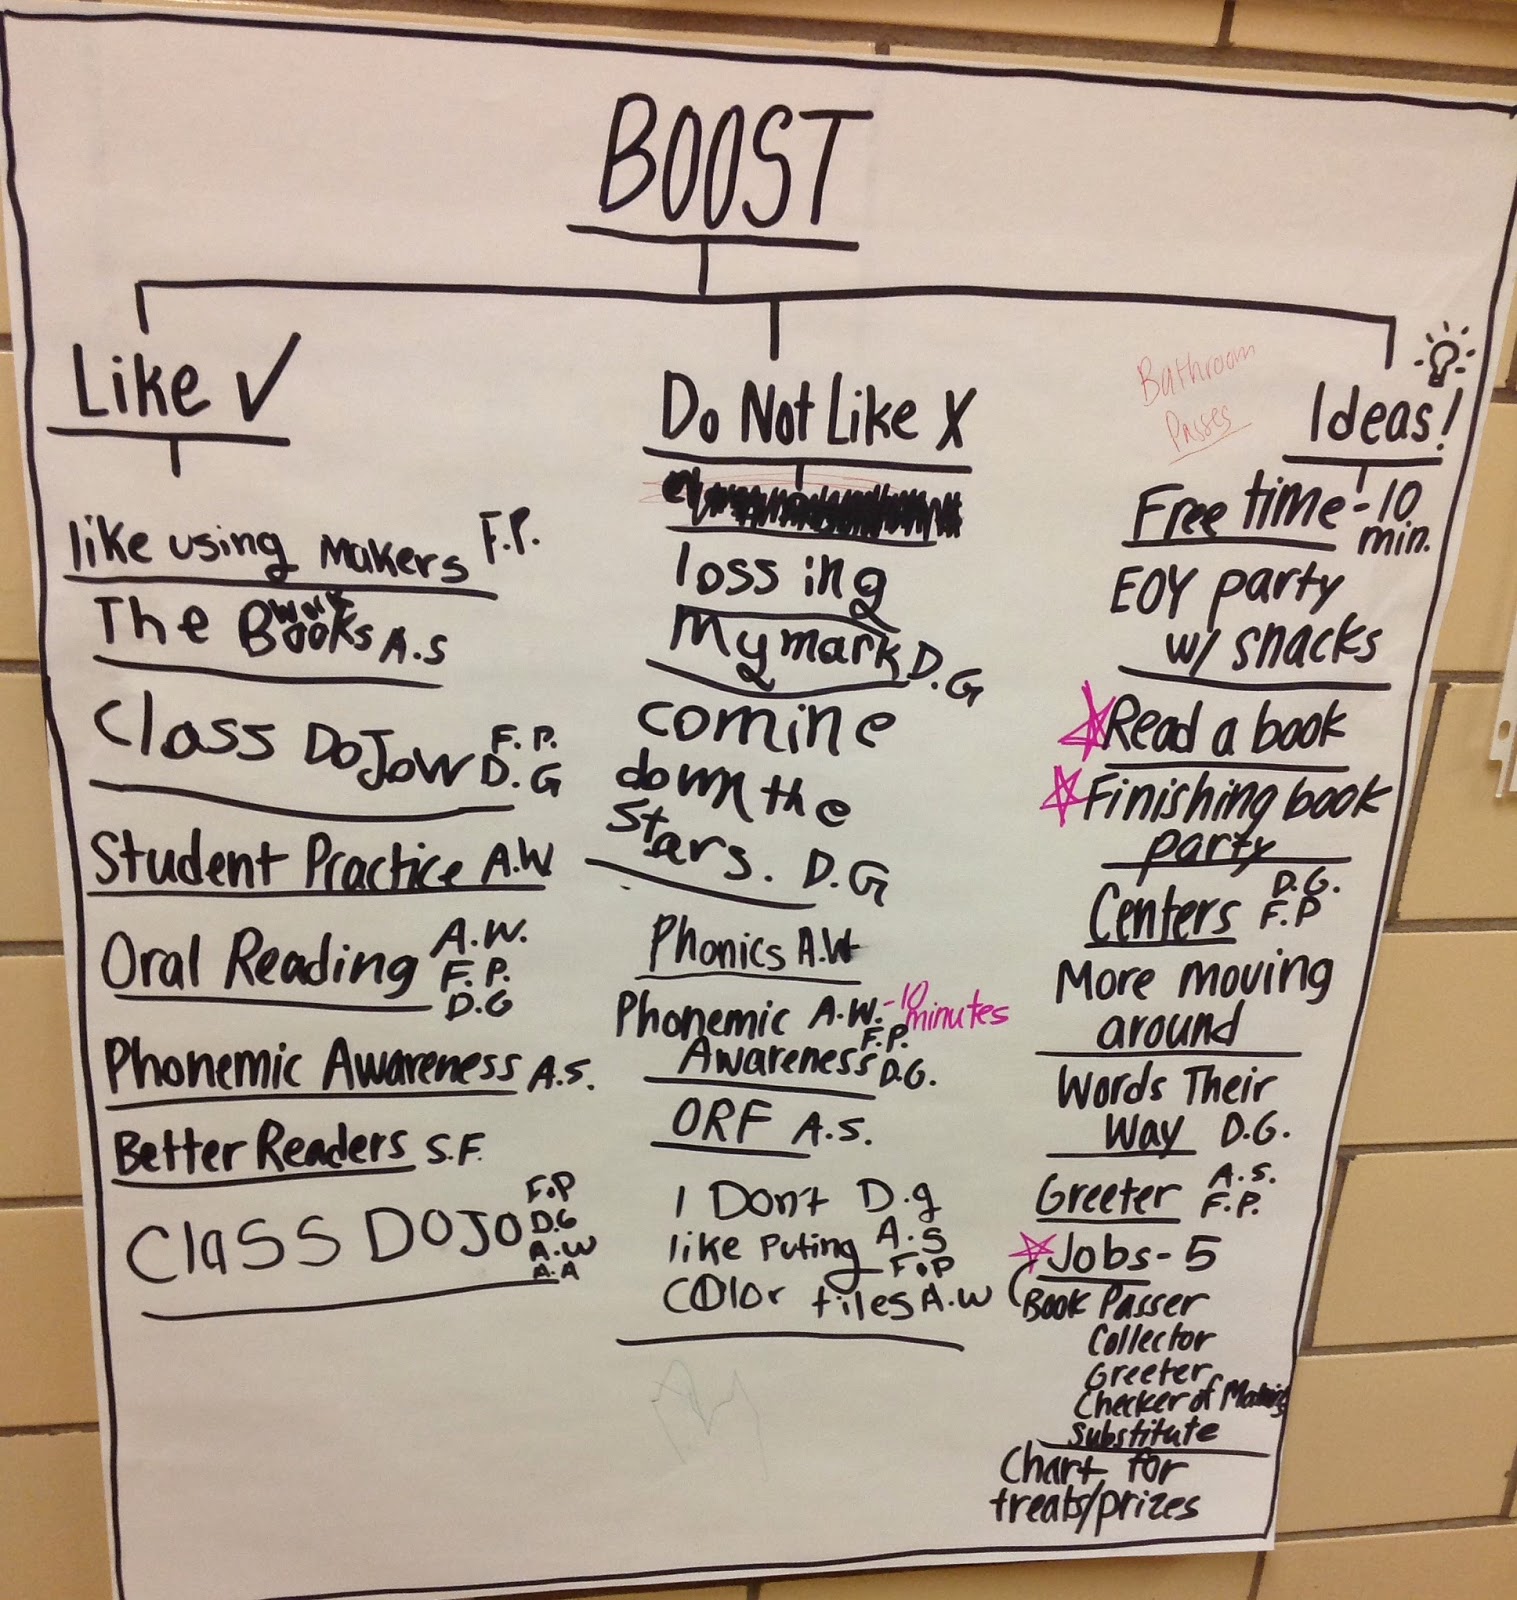 BOOST
Like ✓
like using Makers F.P.
The Work Books A.S
Class DoJow F.P.
D.G
Student Practice A.W
Oral Reading A.W.
F.P.
D.G
Phonemic Awareness A.S.
Better Readers S.F.
Class DOJO F.P
D.G
A.W
A.A
Do Not Like X
lossing
My mark D.G
comine
down the
stars. D.G
Phonics A.W
Phonemic A.W. -10 minutes
Awareness F.P.
D.G.
ORF A.S.
I Don't D.g
like puting A.S
F.P
color tiles A.W
Bathroom
Passes
Ideas!
Free time - 10
min.
EOY party
w/ snacks
Read a book
Finishing book
party
Centers D.G.
F.P
More moving
around
Words Their
Way D.G.
Greeter A.S.
F.P.
Jobs - 5
Book Passer
Collector
Greeter
Checker of
Substitute
Chart for
treats/prizes